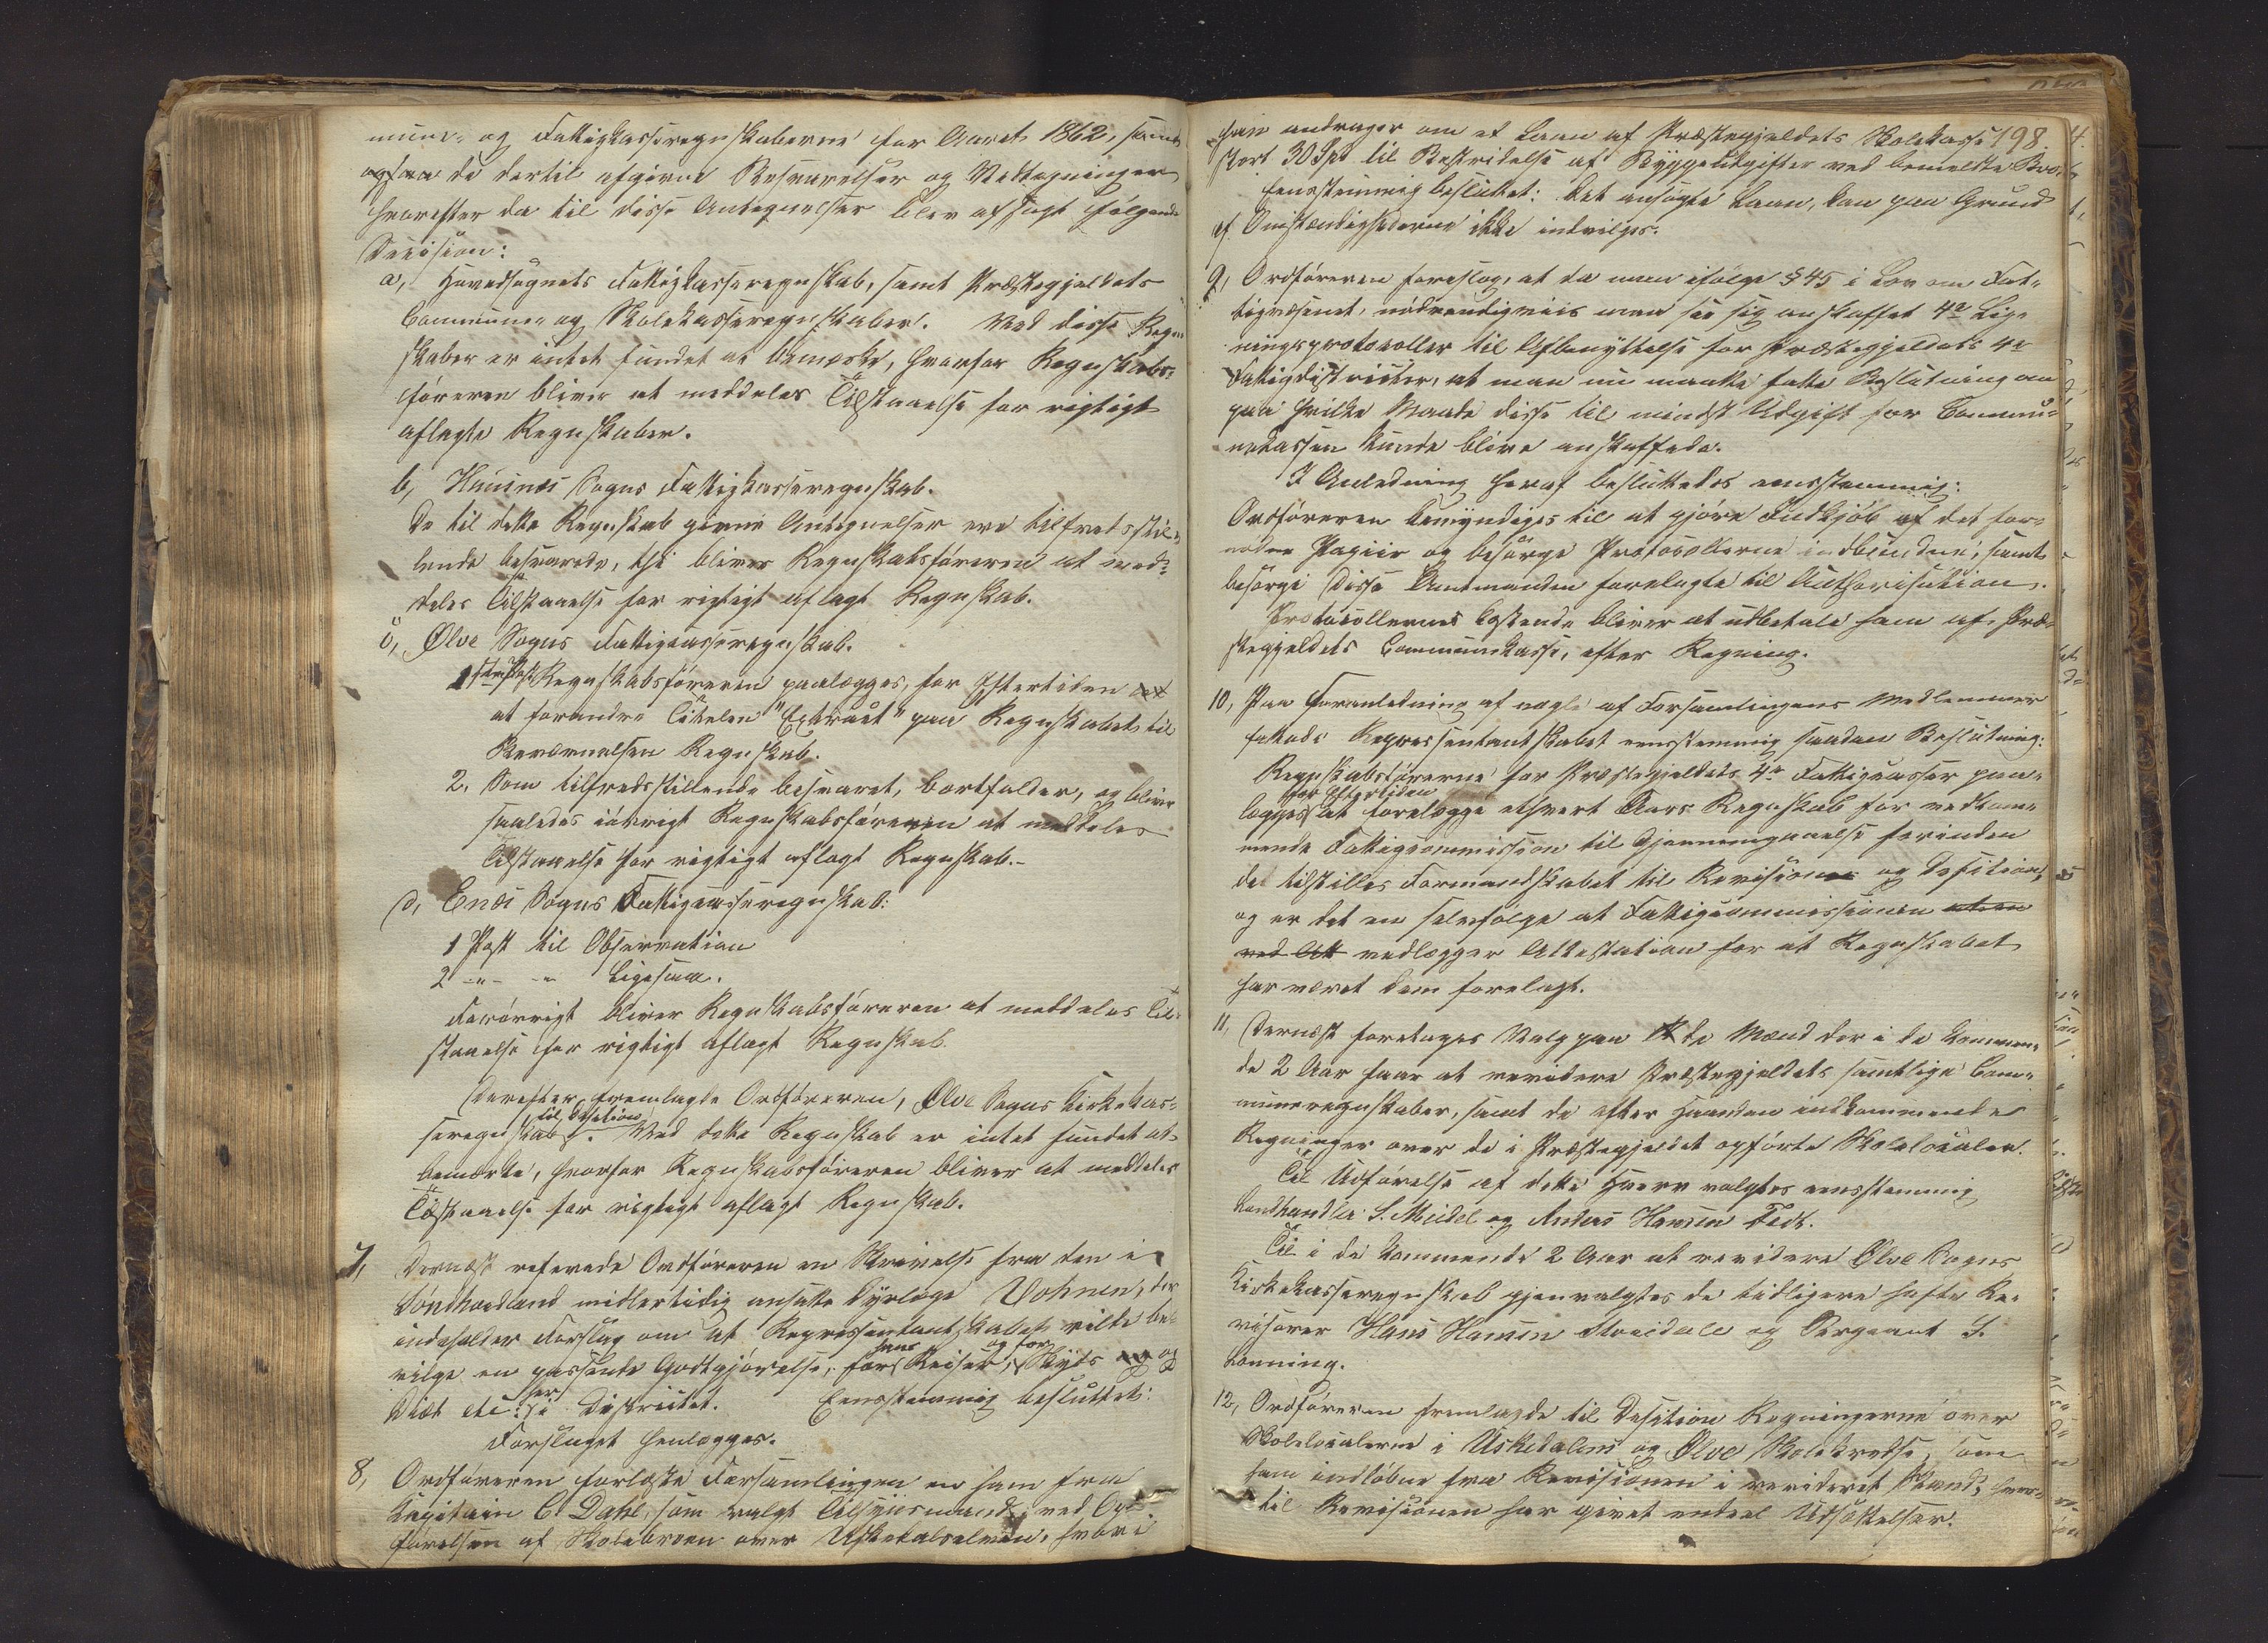 mune- og Fattigkasseregnskaberne for Aaret 1862, samt
ogsaa de dertil afgivne Besvarelser og Vedtegninger
hvorefter da til disse Antegnelser blev afsagt følgende
Decision:
a, Hovedsognets Fattigkasseregnskab, samt Præstegjeldets
Commune- og Skolekasseregnskaber. Ved disse Regn-
skaber er intet fundet at bemærke, hvorfor Regnskabs-
føreren bliver at meddeles Tilstaaelse for rigtigt
aflagte Regnskaber.
b, Huusnæs Sogns Fattigkasseregnskab.
De til dette Regnskab givne Antegnelser ere tilfredsstil-
lende besvarede, thi bliver Regnskabsføreren at med-
deles Tilstaaelse for rigtigt aflagt Regnskab.
c, Ølve Sogns Fattigcasseregnskab.
1 Regnskabsføreren paalægges, for Eftertiden
at forandre Titelen "Extract" paa Regnskabet til
Benævnelsen Regnskab.
2. Som tilfredsstillende besvaret, bortfalder, og bliver
saaledes iøvrigt Regnskabsføreren at meddeles
Tilstaaelse for rigtigt aflagt Regnskab.-
d, Enæs Sogns Fattigcasseregnskab:
1 Post til Observation
2 -"- -" Ligesaa.
Forøvrigt bliver Regnskabsføreren at meddeles Til-
staaelse for rigtigt aflagt Regnskab.
Derefter fremlagde Ordføreren, Ølve Sogns Kirkekas-
seregnskab til Desition. Ved dette Regnskab er intet fundet at
bemærke, hvorfor Regnskabsføreren bliver at meddeles
Tilstaaelse for rigtigt aflagt Regnskab.
7, Dernæst referede Ordføreren en Skrivelse fra den i
Søndhordland midlertidig ansatte Dyrlæge Vohnen, der
indeholder Forslag om at Repræsentantskabet vilde be-
vilge en passende Godtgjørelse, for hans Reiser, og for Skyds og
Diæt etc: her i Districtet. Eensstemmig besluttet:
Forslaget henlægges.
8, Ordføreren forlæste Forsamlingen en ham fra
Capitain C. Dahl, som valgt Tilsynsmand ved Op-
førelsen af Skolebroen over Uskedalselven, hvori
198.
han andrager om et Laan af Præstegjeldets Skolekasse
stort 30 Spd til Bestridelse af Byggeudgifter ved bemeldte Bro.
Eensstemmig besluttet: Det ansøgte Laan, kan paa Grund
af Omstændighederne ikke indvilges.
9, Ordføreren foreslog, at da man ifølge § 45 i Lov om Fat-
tigvæsenet, nødvendigviis maa see sig anskaffet 4re Lig-
ningsprotocoller til Afbenyttelse for Præstegjeldets 4re
Fattigdistricter, at man nu maatte fatte Beslutning om
paa hvilke Maade disse til mindst Udgift for Commu-
nekassen kunde blive anskaffede.
I Anledning heraf besluttedes eensstemmig:
Ordføreren bemyndiges til at gjøre Indkjøb af det for-
nødne Papiir og besørge Protocollerne indbundne, samt
besørge disse Amtmanden forelagte til Authorisation.
Protocollernes Kostende bliver at udbetale ham af Præ-
stegjeldets Communekasse, efter Regning.
10, Paa Foranledning af nogle af Forsamlingens Medlemmer
fattede Repræsentantskabet eensstemmig saadan Beslutning:
Regnskabsførerne for Præstegjeldets 4re Fattigcasser paa-
lægges for Eftertiden at forelægge ethvert Aars Regnskab for vedkom-
mende Fattigcommission til Gjennemgaaelse forinden
det tilstilles Formandskabet til Revision og Desition,
og er det en selvfølge at Fattigcommissionen
vedlægger Attestation for at Regnskabet
har været dem forelagt.
11, Dernæst foretoges Valg paa de Mænd der i de kommen-
de 2 Aar haar at revidere Præstegjeldets samtlige Com-
muneregnskaber, samt de efter Haanden indkommende
Regninger over de i Præstegjeldet opførte Skolelocaler.
Til Udførelse af dette Hverv valgtes eensstemmig
Landhandler S. Meidel og Anders Hansen Tedt.
Til i de kommende 2 Aar at revidere Ølve Sogns
Kirkekasseregnskab gjenvalgtes de tidligere hafte Re-
visorer Hans Hansen og Sergeant S.
Lønning.
12, Ordføreren fremlagde til Desition Regningerne over
Skolelocalerne i Uskedalens og Ølve Skolekredse, som
ham indløbne fra Revisionen i revideret Stand, hvor-
til Revisionen har givet endeel Udsættelser.